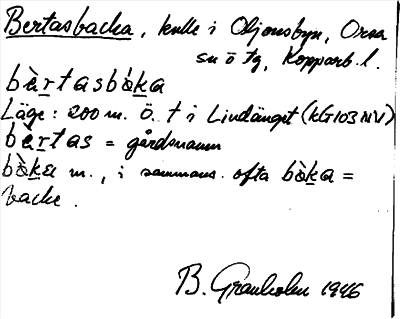 Bertasbacka, kulle i Oljonsbyn, Orsa
sn ö tg, Kopparb. l.
bàrtasbåka
Läge: 200 m. Ö. t i Lindänget (KG103NV)
bàrtas = gårdsnamn
båka m., i sammans. ofta båka =
backe.
B. Granholm 1946